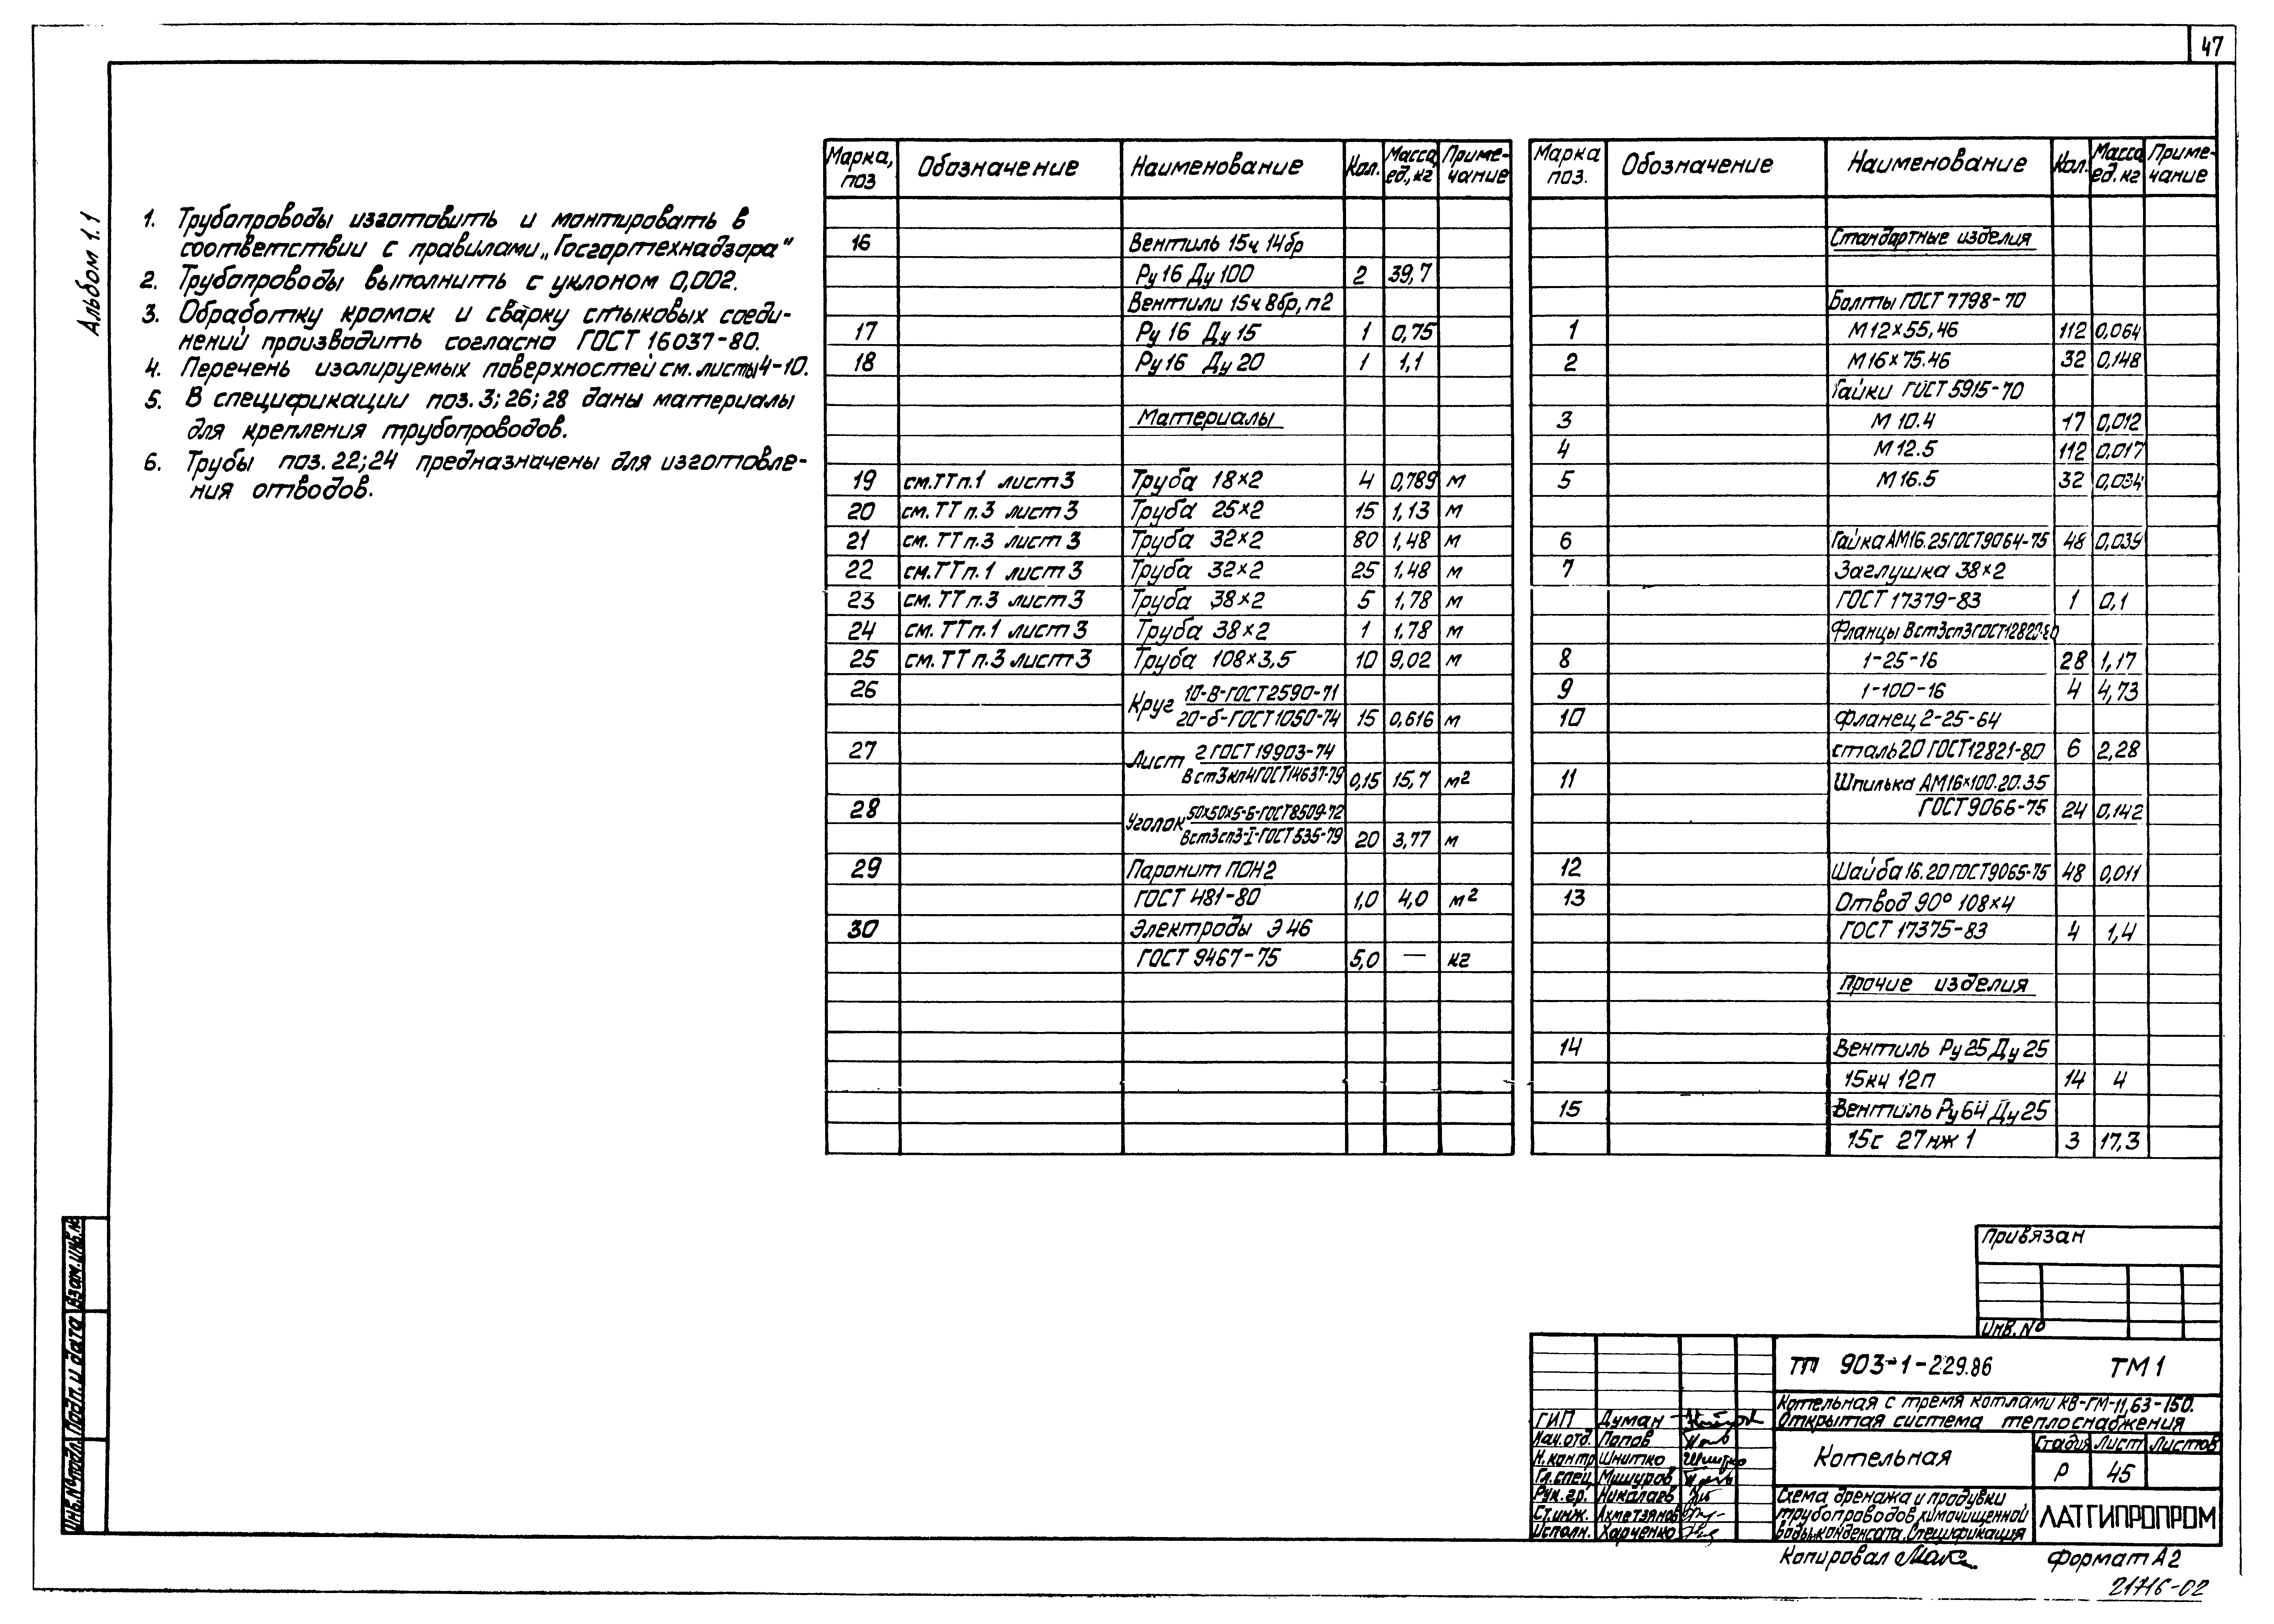 47
Альбом 1.1
1. Трубопроводы изготовить и монтировать в
соответствии с правилами „Госгортехнадзора"
2. Трубопроводы выполнить с уклоном 0,002.
3. Обработку кромок и сварку стыковых соеди-
нений производить согласно ГОСТ 16037-80.
4. Перечень изолируемых поверхностей см. листы 4-10.
5. В спецификации поз. 3; 26; 28 даны материалы
для крепления трубопроводов.
6. Трубы поз. 22; 24 предназначены для изготовле-
ния отводов.
Марка, поз Обозначение Наименование Кол. Масса ед., кг Приме-чание
16 Вентиль 15ч 14бр
Ру 16 Ду 100 2 39,7
Вентили 15ч 8бр, п2
17 Ру 16 Ду 15 1 0,75
18 Ру 16 Ду 20 1 1,1
Материалы
19 см. ТТ п.1 лист 3 Труба 18×2 4 0,789 м
20 см. ТТ п.3 лист 3 Труба 25×2 15 1,13 м
21 см. ТТ п.3 лист 3 Труба 32×2 80 1,48 м
22 см. ТТ п.1 лист 3 Труба 32×2 25 1,48 м
23 см. ТТ п.3 лист 3 Труба 38×2 5 1,78 м
24 см. ТТ п.1 лист 3 Труба 38×2 1 1,78 м
25 см. ТТ п.3 лист 3 Труба 108×3,5 10 9,02 м
26 Круг 10-В-ГОСТ 2590-71
20-б-ГОСТ 1050-74 15 0,616 м
27 Лист 2 ГОСТ 19903-74
Вст3кп4 ГОСТ 14637-79 0,15 15,7 м²
28 Уголок 50×50×5-Б-ГОСТ 8509-72
Вст3сп3-I-ГОСТ 535-79 20 3,77 м
29 Паронит ПОН2
ГОСТ 481-80 1,0 4,0 м²
30 Электроды Э 46
ГОСТ 9467-75 5,0 — кг
Марка поз. Обозначение Наименование Кол. Масса ед. кг Приме-чание
Стандартные изделия
Болты ГОСТ 7798-70
1 М12×55.46 112 0,064
2 М16×75.46 32 0,148
Гайки ГОСТ 5915-70
3 М 10.4 17 0,012
4 М 12.5 112 0,017
5 М 16.5 32 0,034
6 Гайка АМ16.25 ГОСТ 9064-75 48 0,039
7 Заглушка 38×2
ГОСТ 17379-83 1 0,1
Фланцы Вст3сп3 ГОСТ 12820-80
8 1-25-16 28 1,17
9 1-100-16 4 4,73
10 Фланец 2-25-64
сталь 20 ГОСТ 12821-80 6 2,28
11 Шпилька АМ16×100.20.35
ГОСТ 9066-75 24 0,142
12 Шайба 16.20 ГОСТ 9065-75 48 0,011
13 Отвод 90° 108×4
ГОСТ 17375-83 4 1,4
Прочие изделия
14 Вентиль Ру 25 Ду 25
15кч 12п 14 4
15 Вентиль Ру 64 Ду 25
15с 27нж 1 3 17,3
Привязан
Инв. №
ТП 903-1-229.86 ТМ 1
Котельная с тремя котлами КВ-ГМ-11,63-150.
Открытая система теплоснабжения
ГИП Думан
Нач.отд. Попов
Н.контр Шнитко
Гл.спец. Мишуров
Рук.гр. Николаев
Ст.инж. Ахметзянов
Исполн. Харченко
Котельная
Стадия Лист Листов
Р 45
Схема дренажа и продувки
трубопроводов химочищенной
воды, конденсата. Спецификация
ЛАТГИПРОПРОМ
Копировал
Формат А2
21716-02
Инв.№ подл. Подп. и дата Взам.инв.№